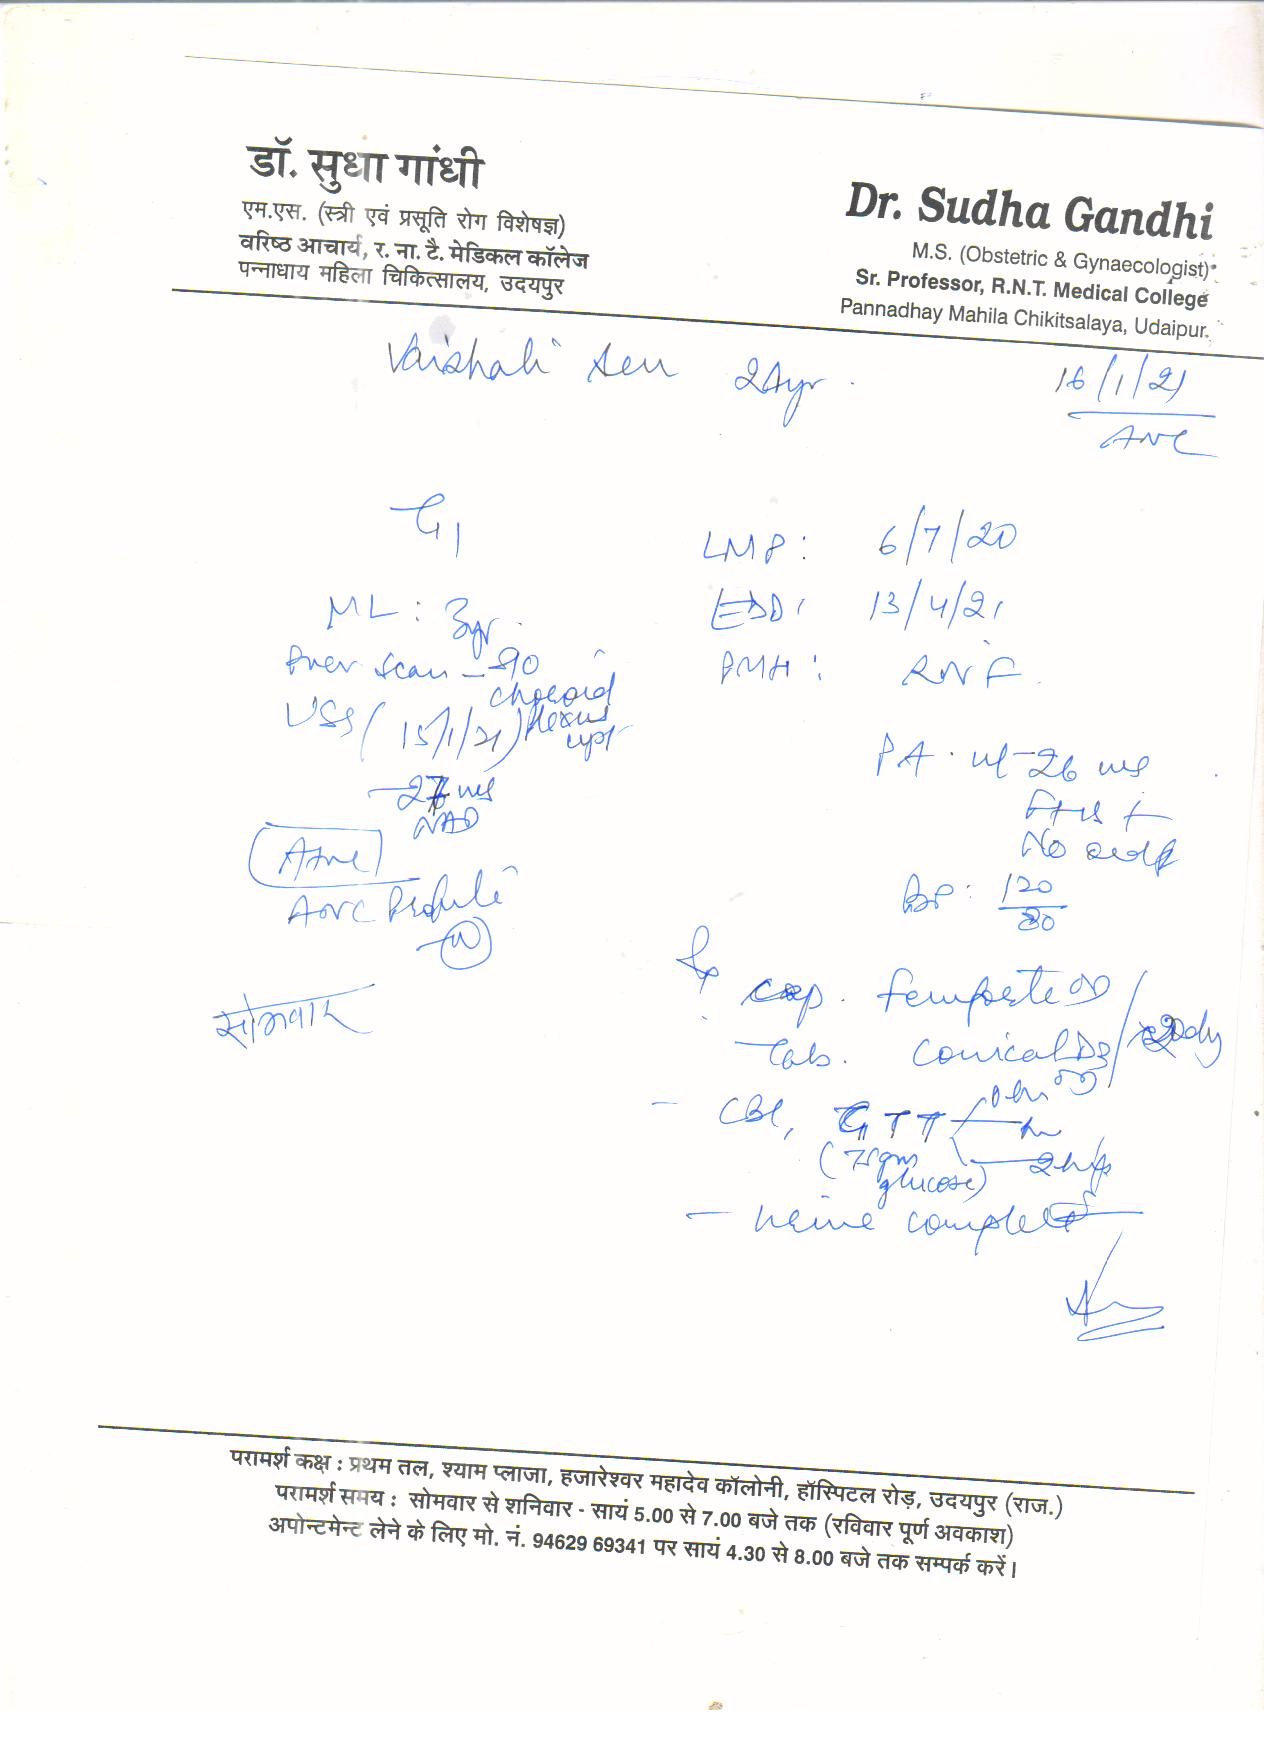 डॉ. सुधा गांधी
एम.एस. (स्त्री एवं प्रसूति रोग विशेषज्ञ)
वरिष्ठ आचार्य, र. ना. टै. मेडिकल कॉलेज
पन्नाधाय महिला चिकित्सालय, उदयपुर
Dr. Sudha Gandhi
M.S. (Obstetric & Gynaecologist)
Sr. Professor, R.N.T. Medical College
Pannadhay Mahila Chikitsalaya, Udaipur.
Vaishali Sen 24yr
16/1/21
ANC
G1
ML : 3yr
scan - 
choroid
plexus
cyst
USS (15/1/21)
27 ws
NAD
ANC Profile
N
सोमवार
LMP : 6/7/20
EDD : 13/4/21
PMH :
PA . ut - 26 ws
FHS +
No
BP : 120/80
Cap. OD
Tab. D3 OD
20 dy
- CBC, GTT 0 hr
hr
2 hr
(75gm
glucose)
- Urine complete
परामर्श कक्ष : प्रथम तल, श्याम प्लाजा, हजारेश्वर महादेव कॉलोनी, हॉस्पिटल रोड़, उदयपुर (राज.)
परामर्श समय : सोमवार से शनिवार - सायं 5.00 से 7.00 बजे तक (रविवार पूर्ण अवकाश)
अपोन्टमेन्ट लेने के लिए मो. नं. 94629 69341 पर सायं 4.30 से 8.00 बजे तक सम्पर्क करें।